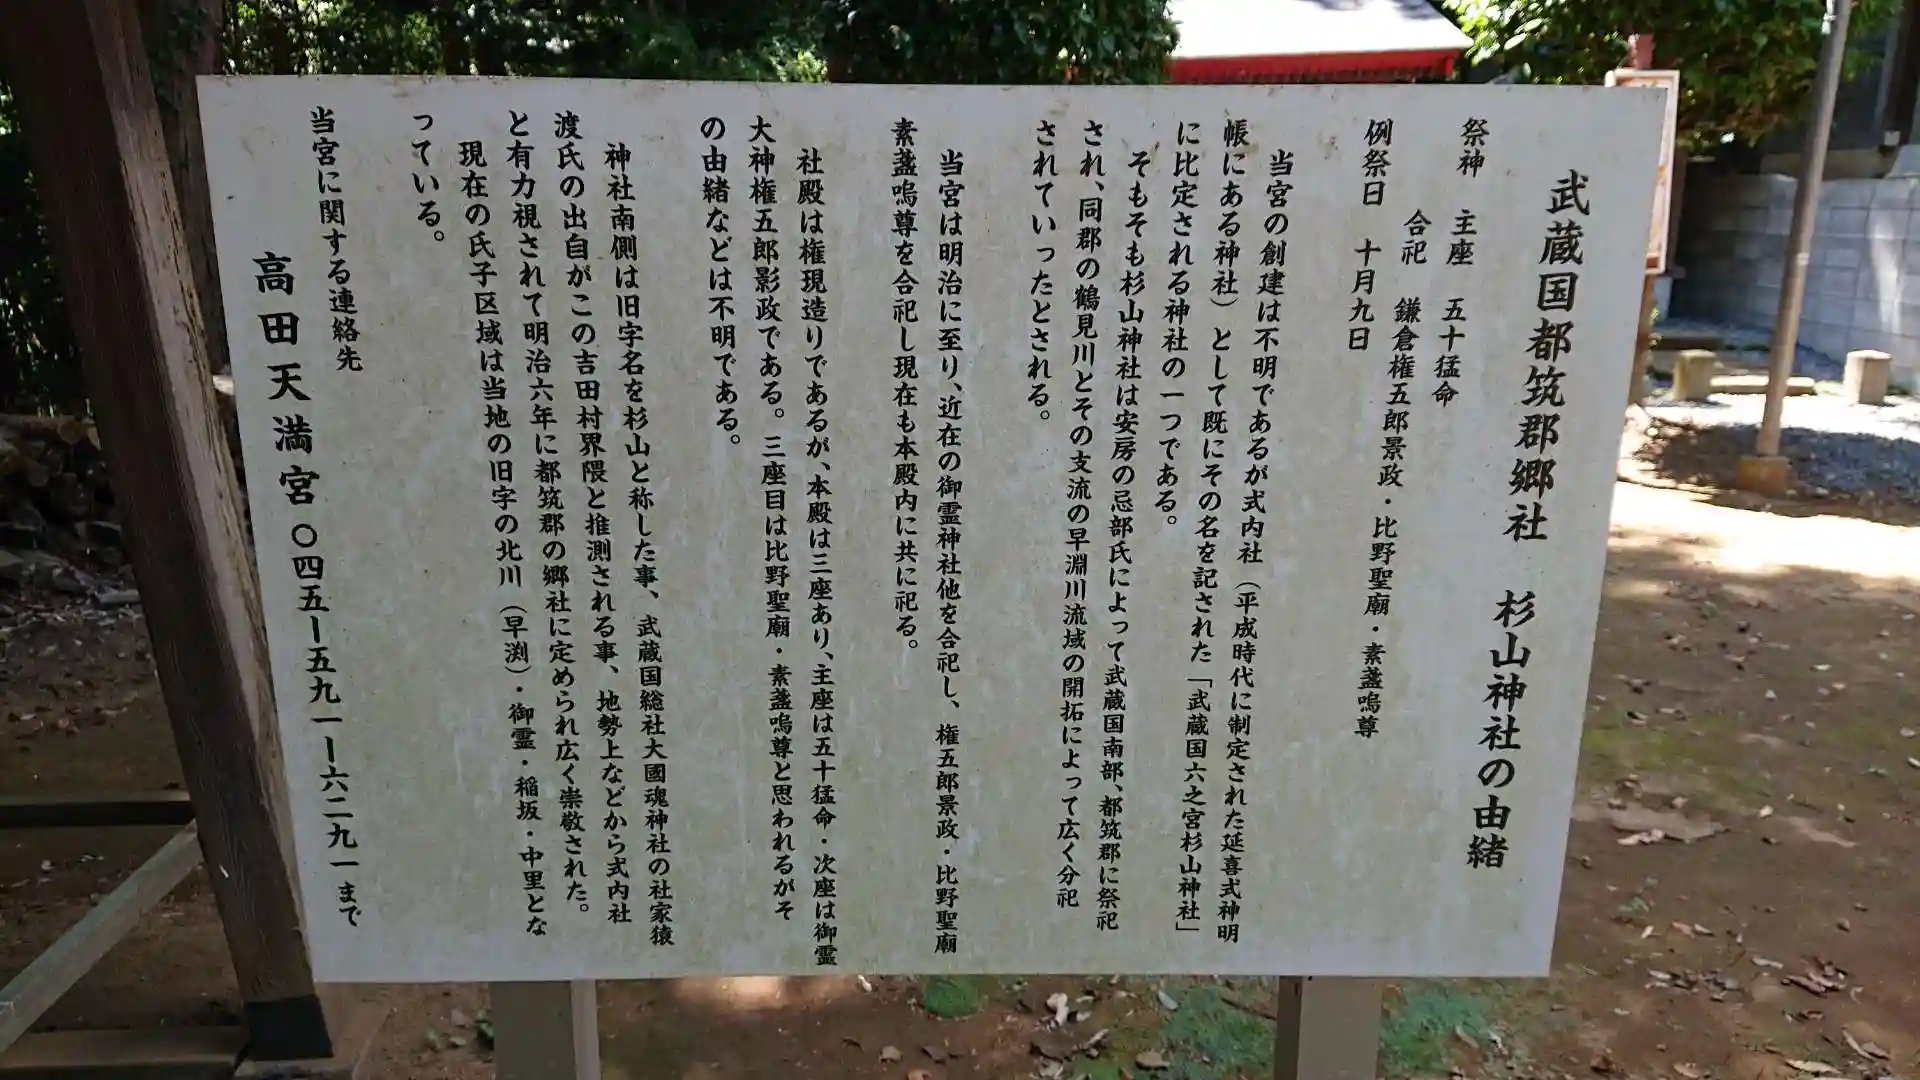 武蔵国都筑郡郷社　杉山神社の由緒
祭神　主座　五十猛命
合祀　鎌倉権五郎景政・比野聖廟・素盞嗚尊
例祭日　十月九日
当宮の創建は不明であるが式内社（平成時代に制定された延喜式神明
帳にある神社）として既にその名を記された「武蔵国六之宮杉山神社」
に比定される神社の一つである。
そもそも杉山神社は安房の忌部氏によって武蔵国南部、都筑郡に祭祀
され、同郡の鶴見川とその支流の早淵川流域の開拓によって広く分祀
されていったとされる。
当宮は明治に至り、近在の御霊神社他を合祀し、権五郎景政・比野聖廟
素盞嗚尊を合祀し現在も本殿内に共に祀る。
社殿は権現造りであるが、本殿は三座あり、主座は五十猛命・次座は御霊
大神権五郎影政である。三座目は比野聖廟・素盞嗚尊と思われるがそ
の由緒などは不明である。
神社南側は旧字名を杉山と称した事、武蔵国総社大國魂神社の社家猿
渡氏の出自がこの吉田村界隈と推測される事、地勢上などから式内社
と有力視されて明治六年に都筑郡の郷社に定められ広く崇敬された。
現在の氏子区域は当地の旧字の北川（早渕）・御霊・稲坂・中里とな
っている。
当宮に関する連絡先
高田天満宮 〇四五ー五九一ー六二九一まで